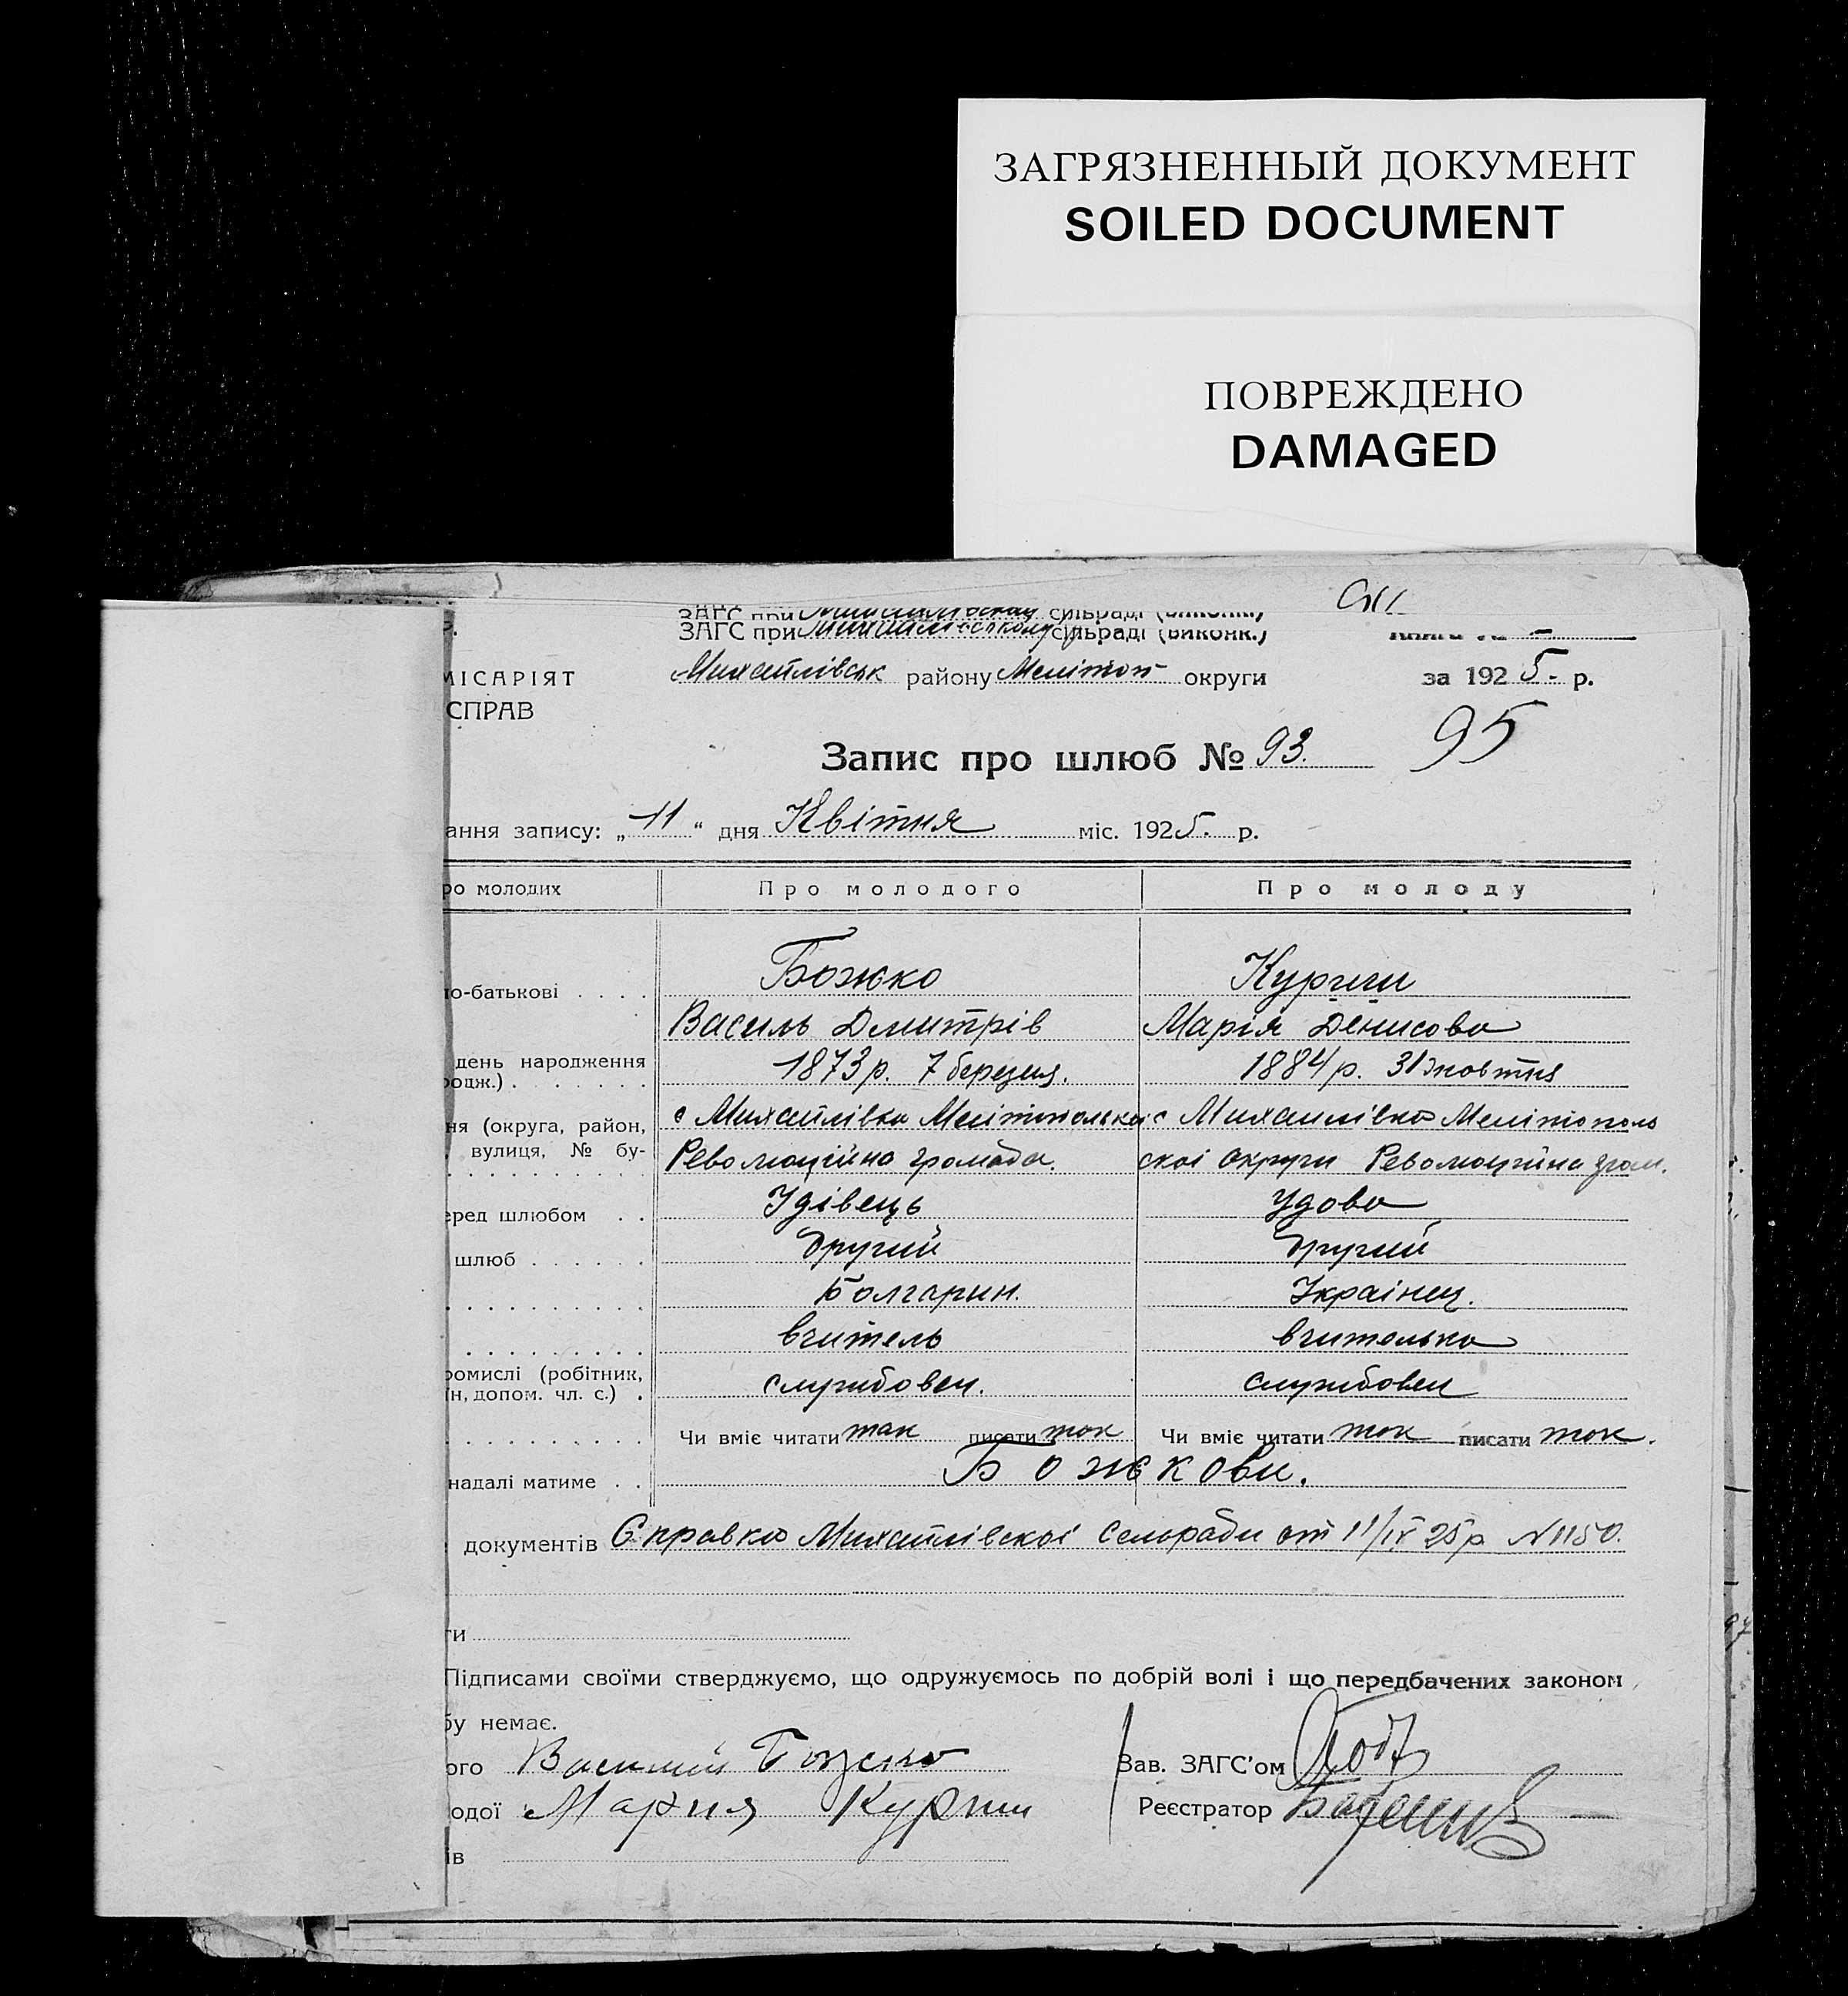 ЗАГРЯЗНЕННЫЙ ДОКУМЕНТ
SOILED DOCUMENT
ПОВРЕЖДЕНО
DAMAGED
ЗАГС при сільраді (виконк.)
ЗАГС при сільраді (виконк.)
МІСАРІЯТ Михайлівськ району Мелітоп округи за 1925. р.
СПРАВ
Запис про шлюб № 93. 95
ання запису: „11“ дня Квітня міс. 1925. р.
ро молодих Про молодого Про молоду
Божко
по-батькові . . . .
Василь Дмитрів Марія Денисова
день народження 1873 р. 7 березня. 1884 р. 31 жовтня
родж.) . . . . . .
с Михайлівка Мелітопольскоі с Михайлівка Мелітополь
ня (округа, район,
вулиця, № бу- Революційна громада. скоі округи Революційна гром.
еред шлюбом . . Удівець Удова
шлюб . . . . . . Другий Другий
Болгарин. Украінец.
вчитель вчителька
ромислі (робітник, службовец. службовец
н, допом. чл. с.) .
Чи вміє читати так писати так Чи вміє читати так писати так.
надалі матиме . . Божкови.
документів Справка Михайлівскоі сельради от 11/IV 25 р. N1150.
ти
Підписами своїми стверджуємо, що одружуємось по добрій волі і що передбачених законом
бу немає.
ого Василий Божко Зав. ЗАГС'ом
одої Мария Реєстратор
ів
97